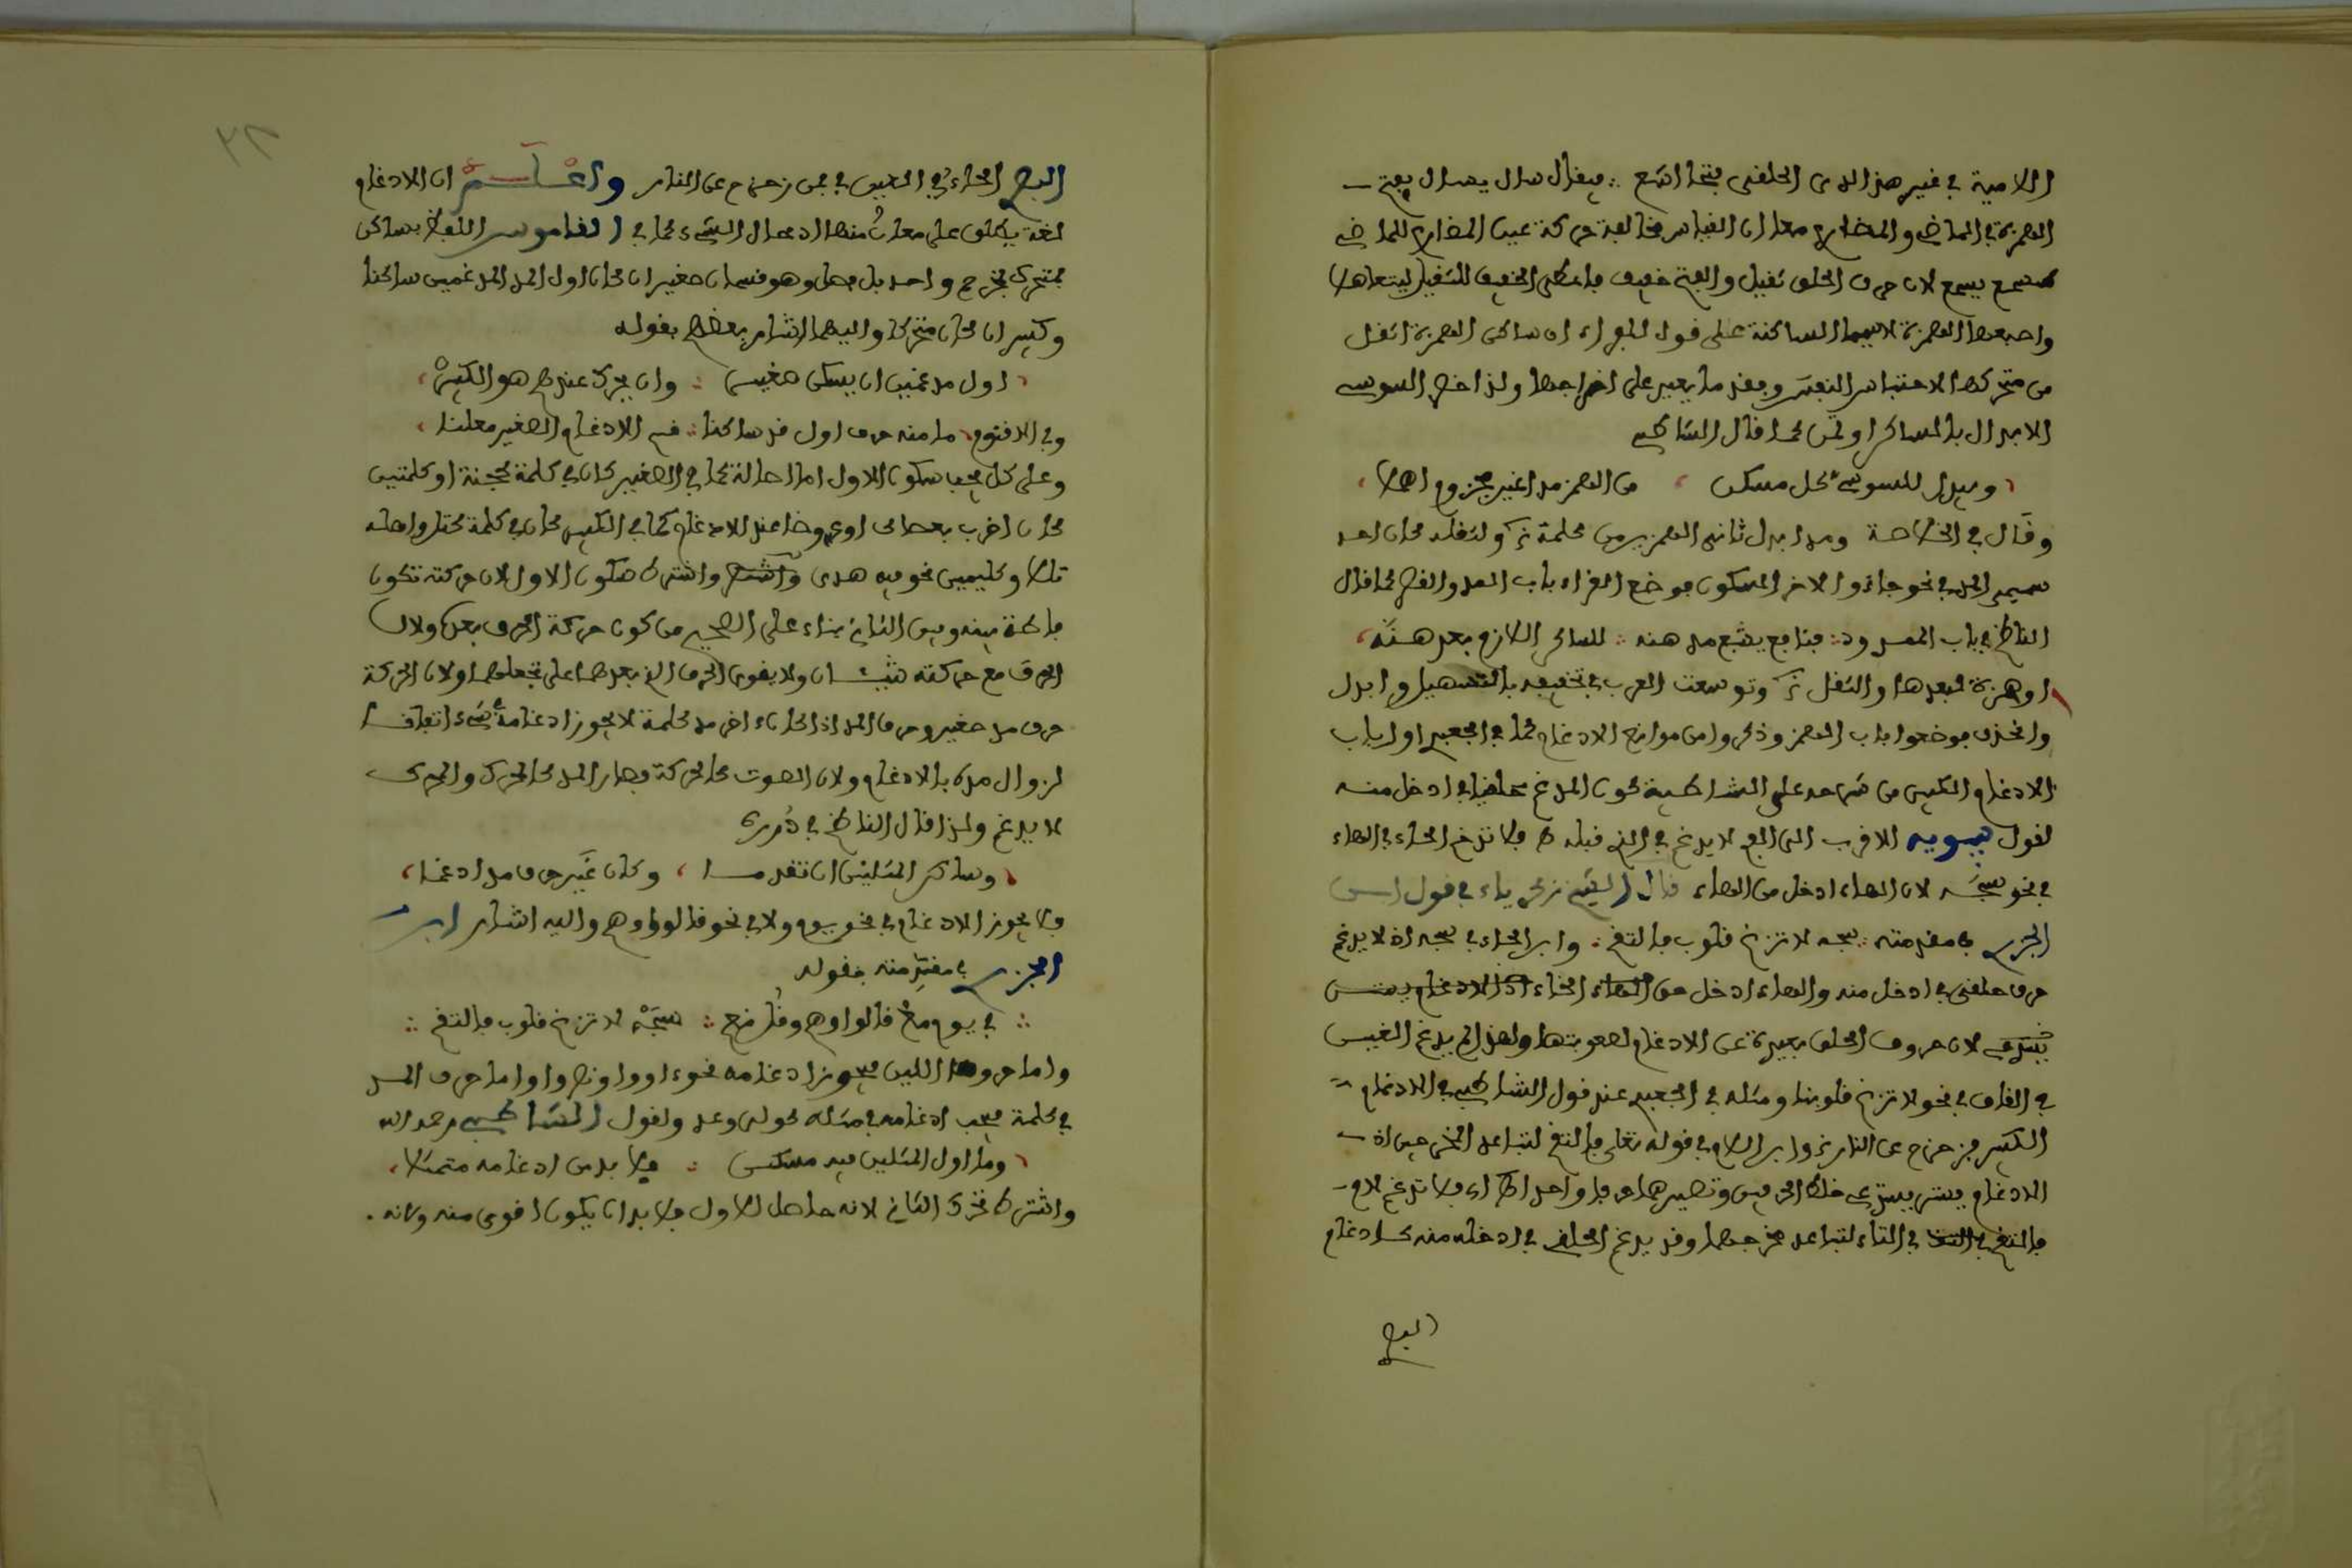 اللامية في غير هذا لدى الحلفى فتحا اشع ∴ فيقال سال يسال بفتح
الهمزة في الماضي والمضارع معا ان القياس مخالفة حركة عين المضارع للماضي
كسمع يسمع لان حرف الحلق ثقيل والفتح خفيف فاعطى الخفيف للثقيل ليتعادلا
واصعبها الهمزة لاسيما الساكنة على قول الفراء ان ساكن الهمزة اثقل
من متحركها لاحتباس النفس وبفقد ما يعين على اخراجها ولذا خص السوسي
الابدال بالساكن اولى كما قال الشاطبي
، ويبدل للسوسي كل مسكن ، من الهمز مدا غير مجزوم اهملا ،
وقال في الخلاصة ومدا ابدل ثانى الهمزين من كلمة
سيمى المد في نحو جاء والاخر المسكون فوضع القراء باب المد والقصر كما قال
الناظم في باب الممدود : فنافع يشبع مدهنه : للساكن اللازم بعدهنه ،
او همزة لبعدها والثقل وتوسعت العرب في تخفيفه بالتسهيل وابدل
والحذف فوضعوا باب الهمز وذكروا من موانع الادغام كما في الجعبرى اول باب
الادغام الكبير من شرحه على الشاطبية كون المدغم حلفيا في ادخل منه
لقول سيبويه الاقرب الى الفم لا يدغم في الذي قبله فلا تدغم الحاء في الهاء
في نحو سبحه لان الهاء ادخل من الحاء قال الشيخ زكرياء في قول ابن
الجزرى في مقدمته ∴ سبحه لا تزغ قلوب فالتقم ∴ وابن الحاء في سبحه اذ لا يدغم
حرف حلقى في ادخل منه والهاء ادخل من الهاء الحاء اذ الادغام
لان حروف الحلق بعيدة عن الادغام لصعوبتها ولهذا لم يدغم الغين
في القاف في نحو لا تزغ قلوبنا ومثله في الجعبرى عند قول الشاطبي في الادغام
الكبير فزحزح عن النار وابن اللام في قوله تعلى فالتقم لتباعد المخرجين اذ
الادغام يستدعى خلط الحرفين وتصييرهما حرفا واحدا فلا تدغم لام
فالتقم في التاء لتباعد مخرجهما وقد يدغم الحلقى في ادخل منه كادغام
البصر
البصر الحاء في العين في فمن زحزح عن النار واعلم ان الادغام
لغة يطلق على معان منها ادخال الشيء كما في القاموس اللفظ بساكن
فمتحرك بمخرج واحد بلا فصل وهو قسمان صغير ان كان اول المدغمين ساكنا
وكبير ان كان متحركا واليهما اشار بعضهم بقوله
، اول مدغمين ان يسكن صغير ∴ وان يحرك عندهم هو الكبير ،
ما منه حرف اول قد سكنا ∴ سم الادغام الصغير معلنا ،
وعلى كل يجب سكون الاول اما اصالة كما في الصغير كان في كلمة او كلمتين
كان اضرب بعصاك او عروضا عند الادغام كما في الكبير كان في كلمة
وكلمتين نحو فيه هدى واشترط سكون الاول لان حركته تكون
فاصلة بينه وبين الثانى بناء على الصحيح من كون حركة الحرف بعده ولان
الحرف مع حركته شيئان ولا يقوى الحرف الذي بعدهما على تحملهما ولان الحركة
حرف مد صغير وحرف المد اذا كان اخر كلمة لا يجوز ادغامه في شيء اتفاقا
لزوال مده بالادغام ولان الصوت كالحركة فصار المد كالمحرك والمحرك
لا يدغم ولذا قال الناظم في درره
، وساكن المثلين ان تقدما ، وكان غير حرف مد ادغما ،
فلا يجوز الادغام في نحو في يوم ولا في نحو قالوا وهم واليه اشار ابن
الجزرى في مقدمته بقوله
∴ في يوم مع قالوا وهم وقل نعم ∴ سبحه لا تزغ قلوب فالتقم ∴
واما حروف اللين فيجوز ادغامه نحو اووا ونصروا واما حرف المد
في كلمة فيجب ادغامه في مثله ولقول الشاطبي رحمه الله
، وما اول المثلين فيه مسكن ∴ فلا بد من ادغامه متمثلا ،
واشترط تحرك الثاني لانه حاصل للاول فلا بد ان يكون اقوى منه ولانه